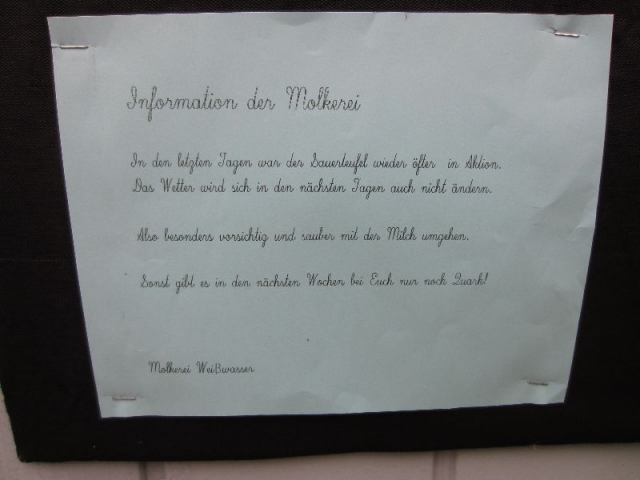 Information der Molkerei
In den letzten Tagen war der Sauerteufel wieder öfter in Aktion.
Das Wetter wird sich in den nächsten Tagen auch nicht ändern.
Also besonders vorsichtig und sauber mit der Milch umgehen.
Sonst gibt es in den nächsten Wochen bei Euch nur noch Quark!
Molkerei Weißwasser